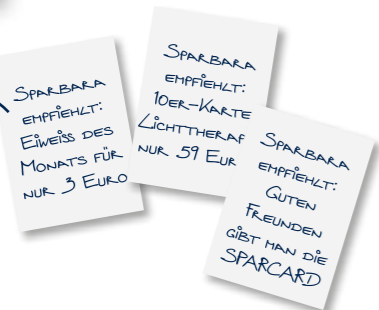 SPARBARA
EMPFIEHLT:
EIWEISS DES
MONATS FÜR
NUR 3 EURO
SPARBARA
EMPFIEHLT:
10ER-KARTE
LICHTTHERAP
NUR 59 EUR
SPARBARA
EMPFIEHLT:
GUTEN
FREUNDEN
GIBT MAN DIE
SPARCARD